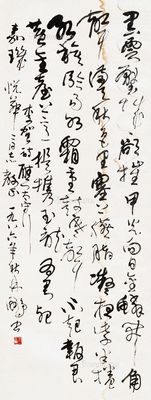 黑雲壓城城欲摧甲光向日金鱗開角
聲滿天秋色裏塞上燕脂凝夜紫半捲
紅旗臨易水霜重鼓寒聲不起報君
黃金臺上意提携玉龍為君死
李賀詩雁門太守行一九八六年秋
悦華二同志教正